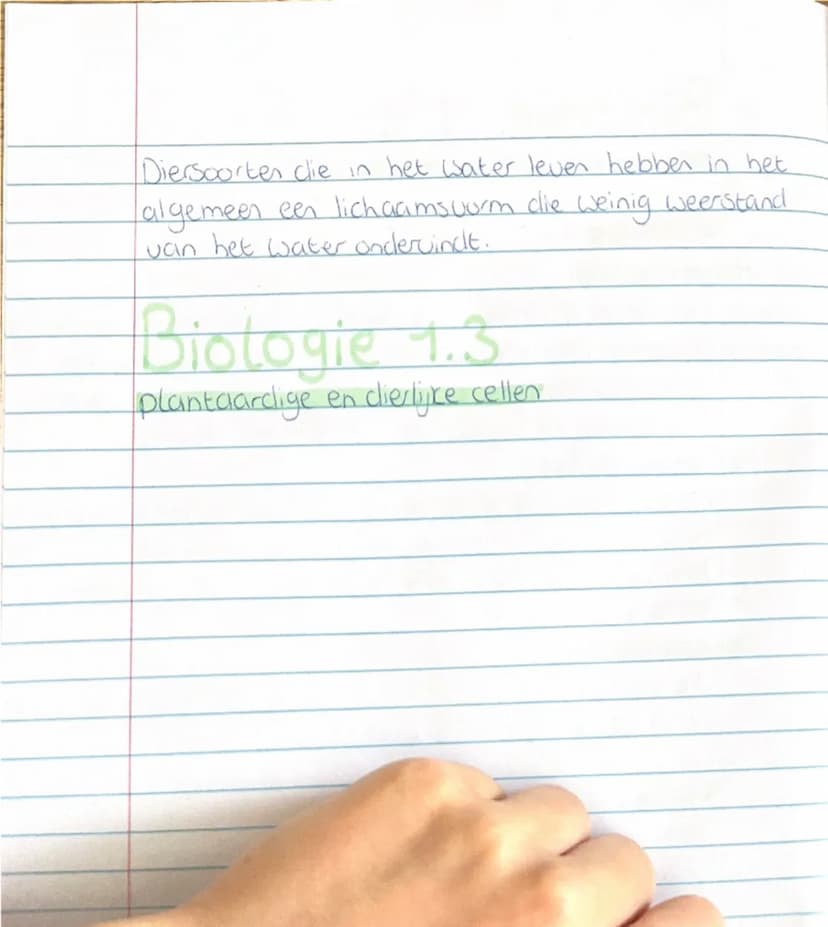 Diersoorten die in het water leven hebben in het
algemeen een lichaamsvorm die weinig weerstand
van het water ondervindt.
Biologie 1.3
plantaardige en dierlijke cellen